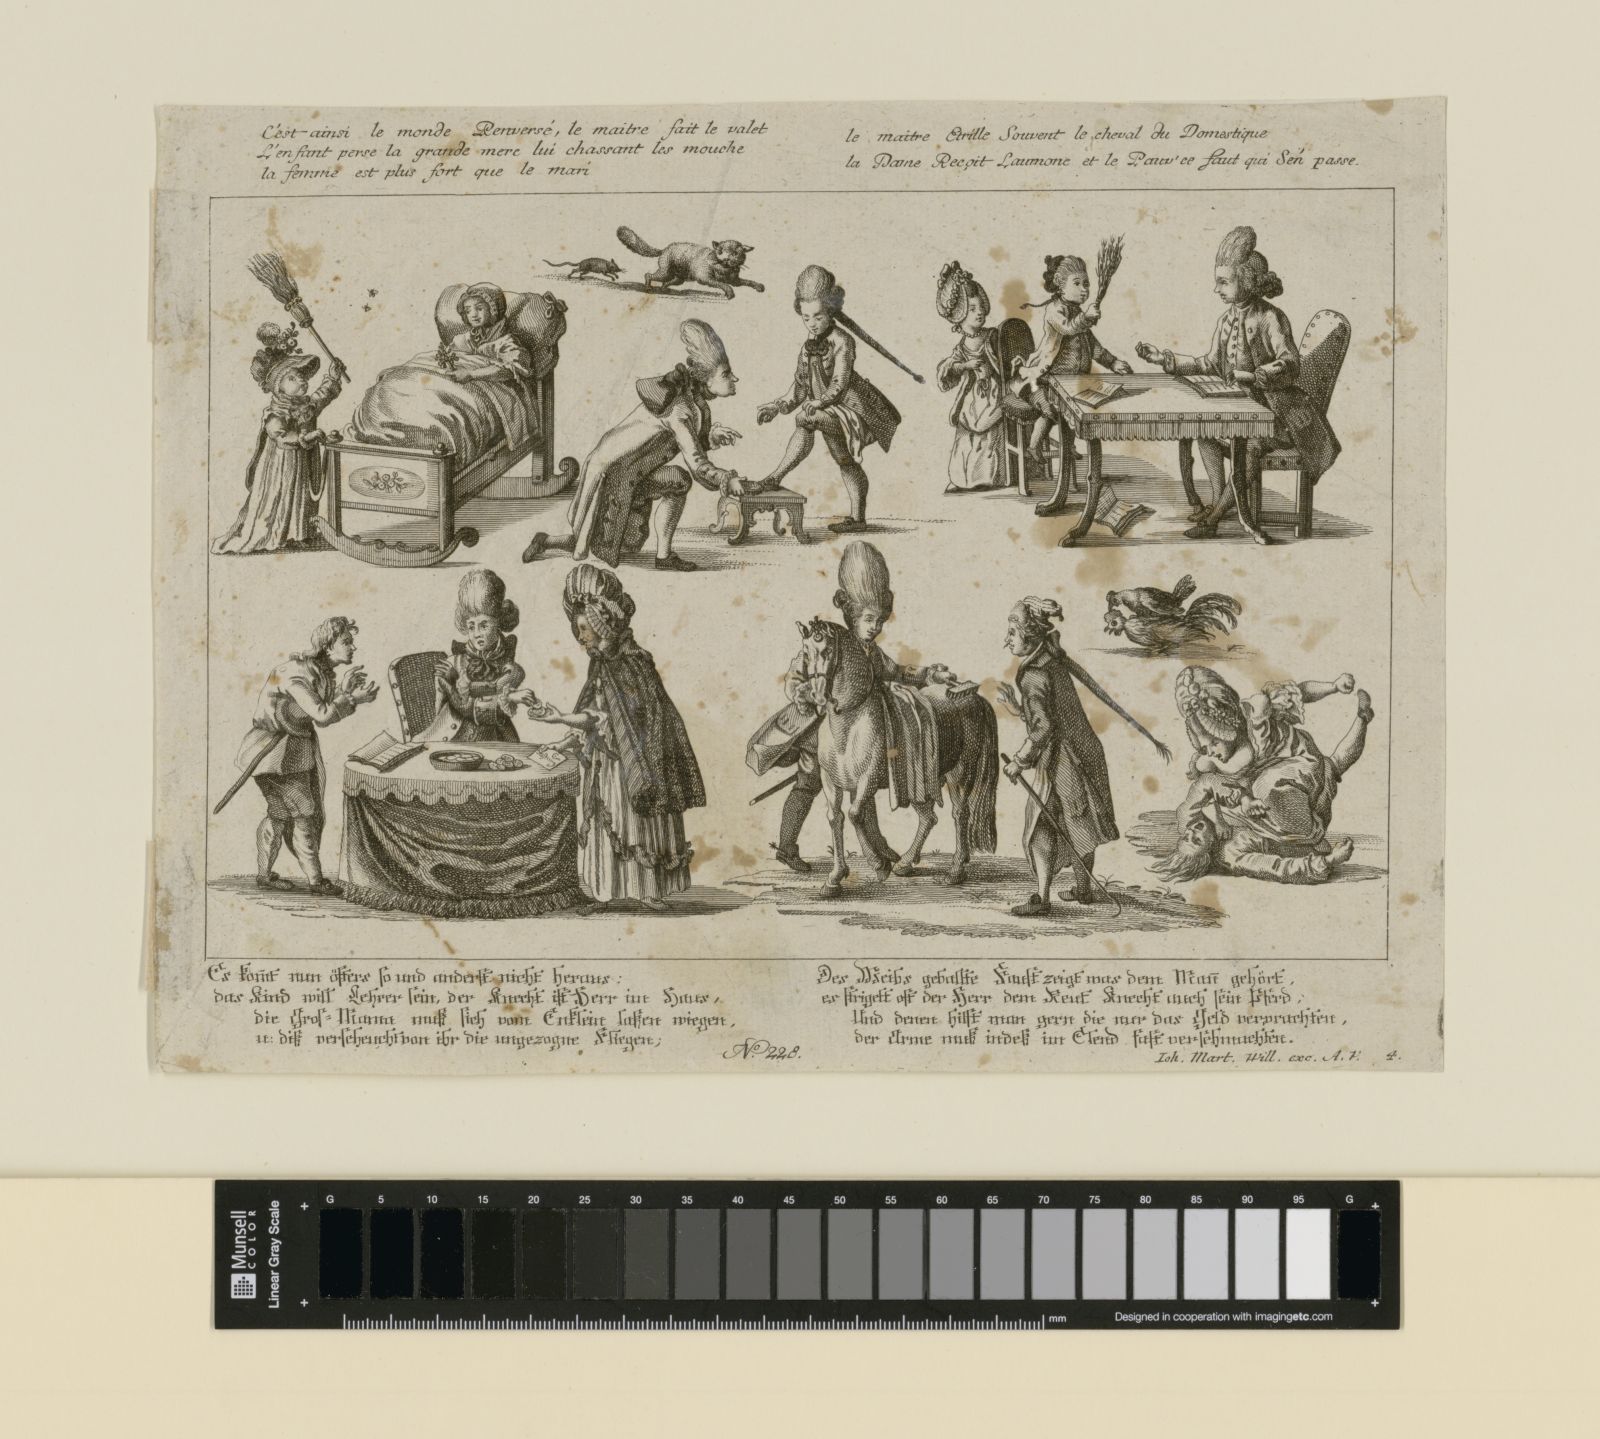 C'est-ainsi le monde Renversé, le maitre fait le valet
L'enfant perse la grande mere lui chassant les mouche
la femme est plus fort que le mari
le maitre Etrille Souvent le cheval du Domestique
la Dame Reçoit Laumone et le Pauv'ce faut qui S'en passe.
Es kom̄t nun öffters so und anderst nicht heraus:
das Kind will Lehrer sein, der Knecht ist Herr im Haus,
die Gros-Mama muß sich vom Encklein laßen wiegen,
u: diß verscheucht von ihr die ungezogne Fliegen;
Des Weibs geballte Faust zeigt was dem Man̄ gehört,
es strigelt oft der Herr dem Reut Knecht auch sein Pferd;
Und denen hilft man gern die nur das Geld verprachten,
der Arme muß indeß im Elend fast verschmachten.
No. 228.
Ioh. Mart. Will. exc. A. V. 4.
Munsell
COLOR
Linear Gray Scale
G 5 10 15 20 25 30 35 40 45 50 55 60 65 70 75 80 85 90 95 G
mm
Designed in cooperation with imagingetc.com